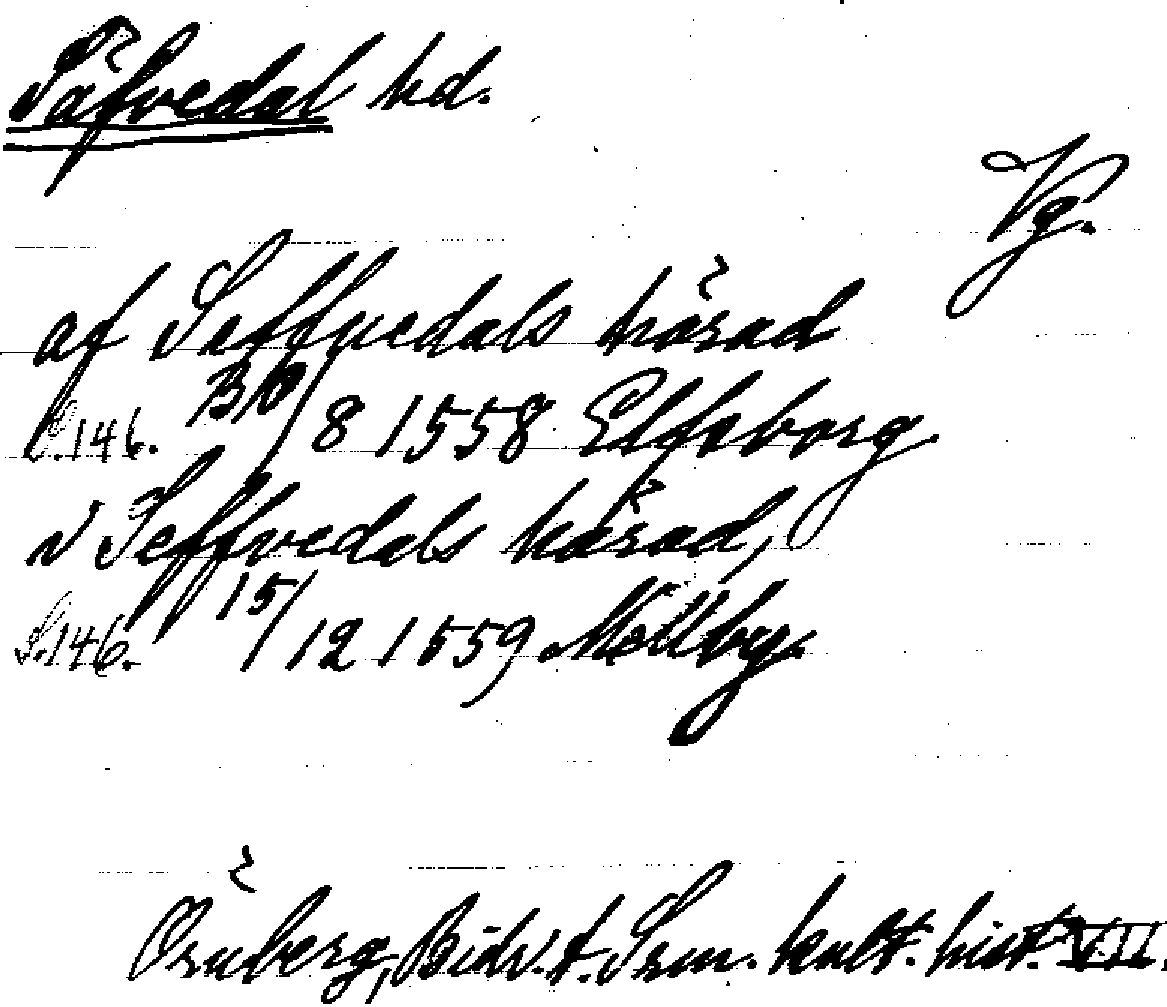 Säfvedal hd.
Vg.
af Seffuedals härad
S.146. 30/8 1558 Elfsborg.
i Seffvedals härad,
S.146. 15/12 1559 Mellby.
Örnberg, Bidr. t. Srm. kult. hist. VII.